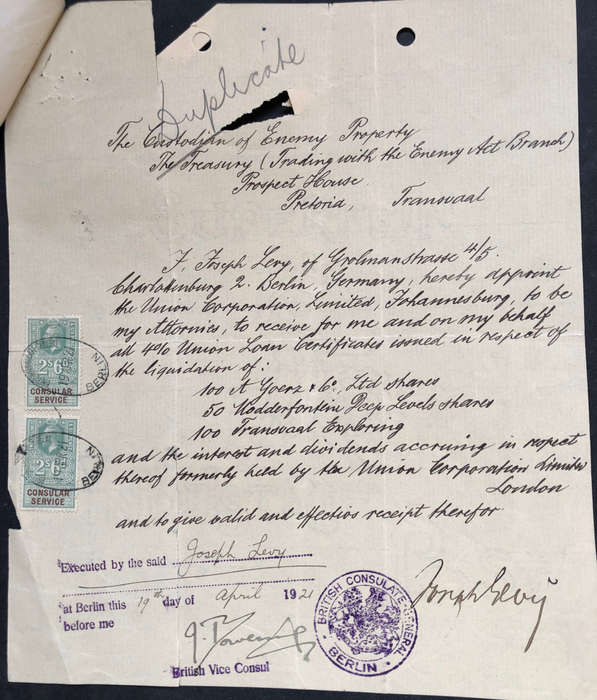 Duplicate
The Custodian of Enemy Property
The Treasury (Trading with the Enemy Act Branch)
Prospect House
Pretoria, Transvaal
I, Joseph Levy, of Grolmanstrasse 4/5.
Charlottenburg 2. Berlin, Germany, hereby appoint
the Union Corporation, Limited, Johannesburg, to be
my Attornies, to receive for me and on my behalf
all 4% Union Loan Certificates issued in respect of
the liquidation of:
100 A Goerz & Co, Ltd shares
50 Modderfontein Deep Levels shares
100 Transvaal Exploring
and the interest and dividends accruing in respect
thereof formerly held by the Union Corporation Limited
London
and to give valid and effective receipt therefor
2s6d
CONSULAR
SERVICE
BERLIN
2s6d
CONSULAR
SERVICE
BERLIN
Executed by the said Joseph Levy
at Berlin this 19th day of April 1921
before me
British Vice Consul
BRITISH CONSULATE-GENERAL
BERLIN
Joseph Levy